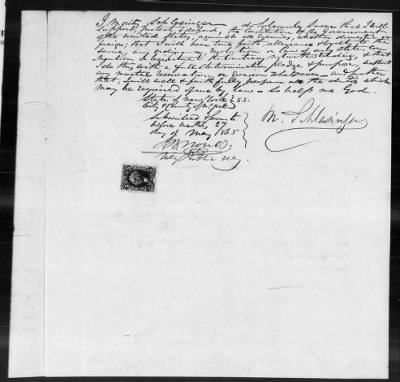 I, Moritz Schlesinger do Solemnly Swear that I will
Support, protect & defend, the Constitution & the Government
of the United States, against all enemies, whether domestic or
foreign, that I will bear true faith, allegiance & loyalty to the
same, any ordinance, resolution or law of any State, Con-
vention or Legislature to the contrary notwithstanding, & that
I do this with a full determination, pledge & purpose, without
any mental reservation or evasion whatsoever, and further
that I will well & faithfully perform all the duties which
may be required of me by law. So help me God.
State of New York } SS.
City & County of New York
M. Schlesinger
Subscribed & Sworn to
before me this 27
day of May 1865
Notary Public N.Y.